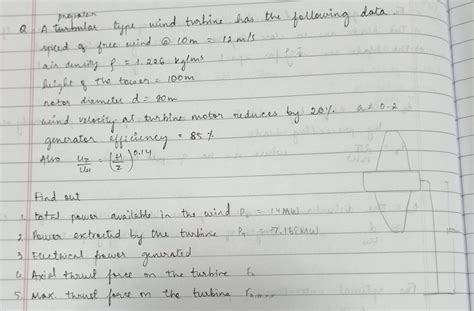 propeller
Q. A turbular type wind turbine has the following data.
speed of free wind @ 10m = 12 m/s
air density ρ = 1.226 kg/m3
height of the tower = 100m
rotor diameter d = 80m
wind velocity at turbine motor reduces by 20% a = 0.2
generator efficiency = 85%
Also = (H/Z)^0.14
Find out
1. total power available in the wind = 14MW
2. Power extracted by the turbine
3. Electrical power generated
4. Axial thrust force on the turbine
5. Max. thrust force on the turbine